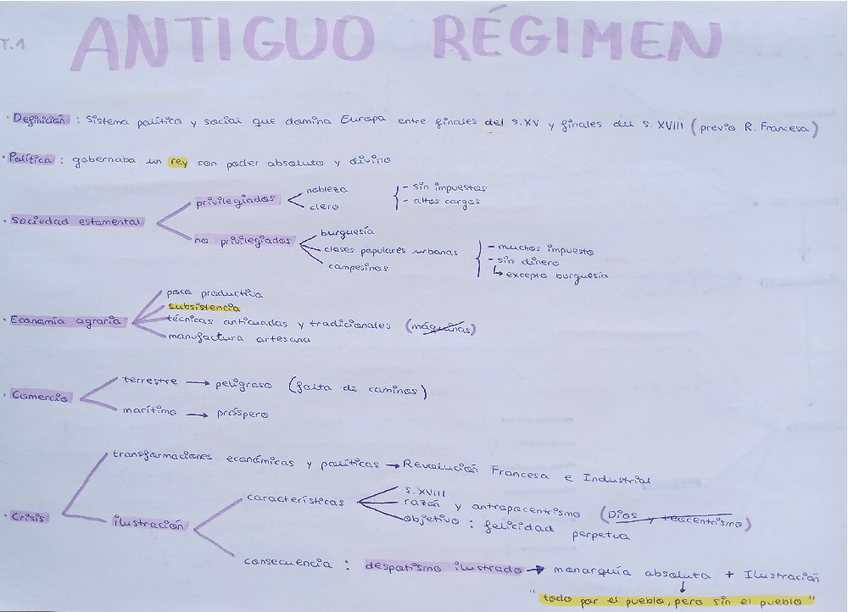 T.1 ANTIGUO RÉGIMEN
· Definición : sistema político y social que domina Europa entre finales del s.XV y finales del s. XVIII (previo R. Francesa)
· Política : gobernaba un rey con poder absoluto y divino
· Sociedad estamental
privilegiados
nobleza
clero
- sin impuestos
- altos cargos
no privilegiados
burguesía
clases populares urbanas
campesinos
- muchos impuesto
- sin dinero
↳ excepto burguesía
· Economía agraria
poco productiva
subsistencia
técnicas anticuadas y tradicionales (máquinas)
manufactura artesana
· Comercio
terrestre → peligroso (falta de caminos)
marítimo → próspero
· Crisis
transformaciones económicas y políticas → Revolución Francesa e Industrial
ilustración
características
s. XVIII
razón y antropocentrismo (Dios y teocentrismo)
objetivo : felicidad perpetua
consecuencia : despotismo ilustrado → monarquía absoluta + Ilustración
"todo por el pueblo, pero sin el pueblo"